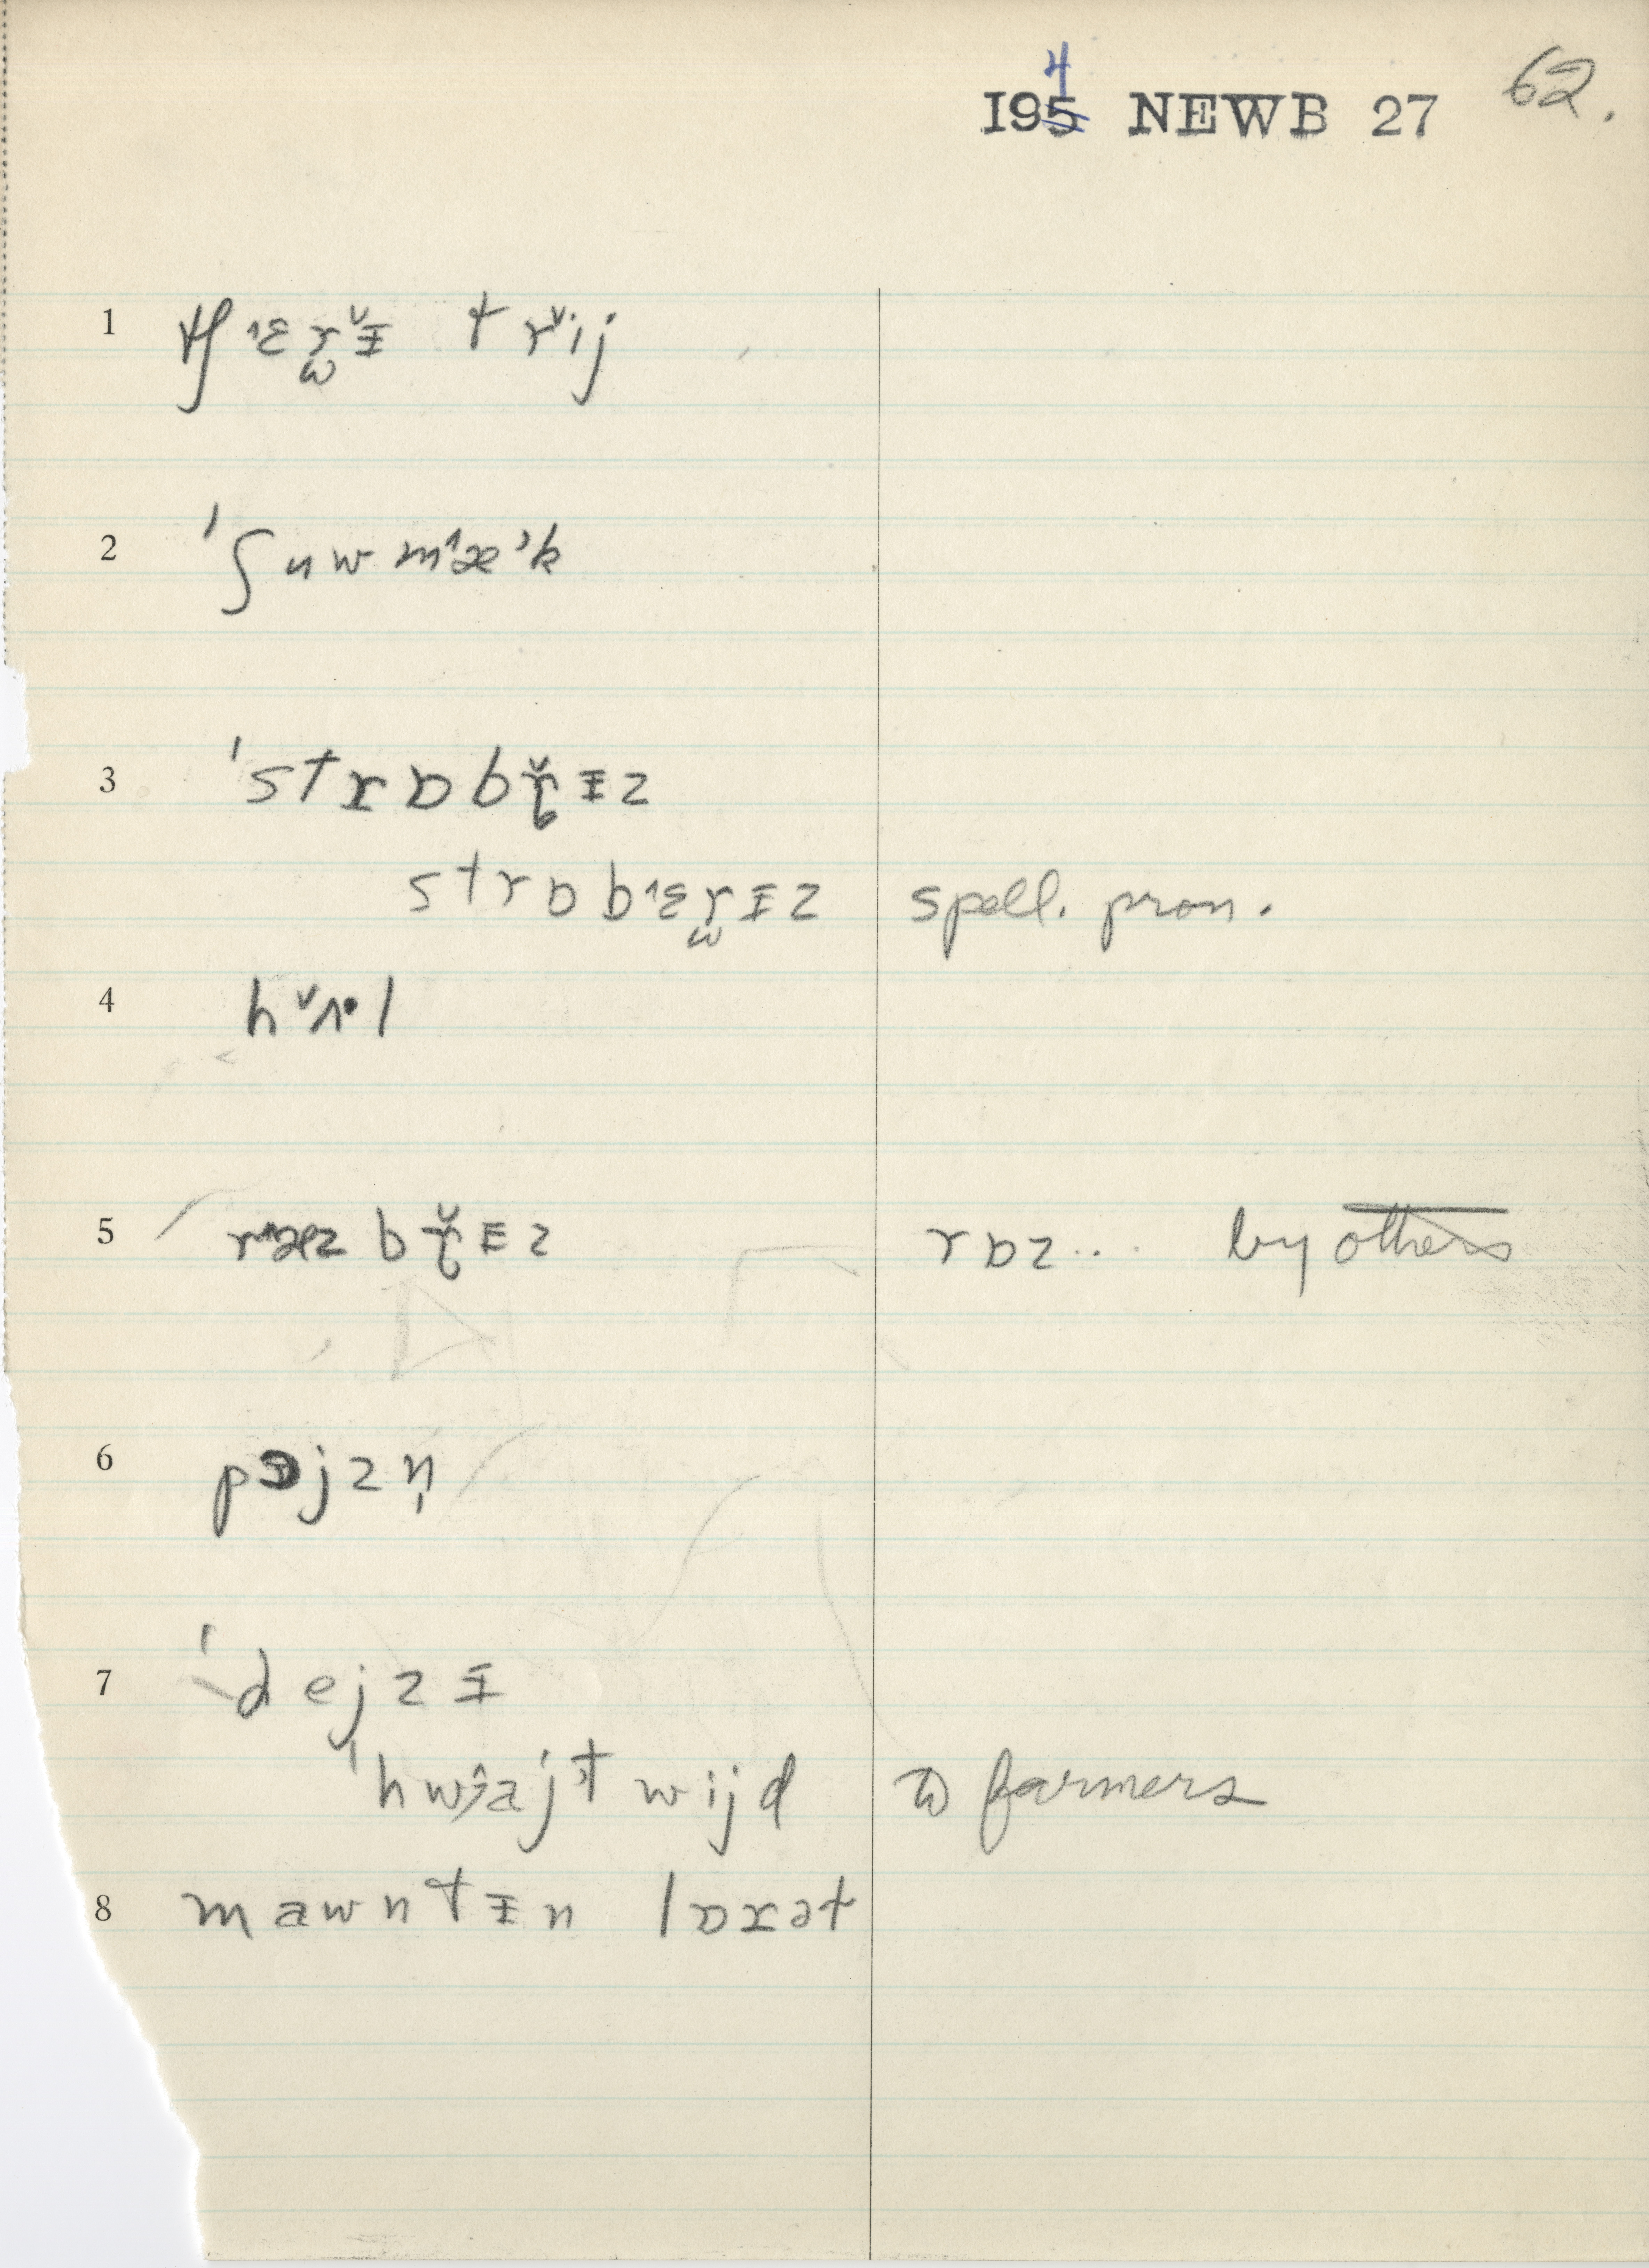 195 4 NEWB 27 62.
1 tʃ˄ɛɽ̬ɪ tr˅ij
2 ˈʃuwm˄æʾk
3 ˈstrɒbɽ̌ɪz
strɒb˄ɛrɪz spell. pron.
4 h˅ʌ·l
5 r˄æzbɽ̌ɪz rɒz.. by others
6 pɔjzn̩
7 ˈdejzɪ
ˈhwajtwijd to farmers
8 mawntɪn lɒrət